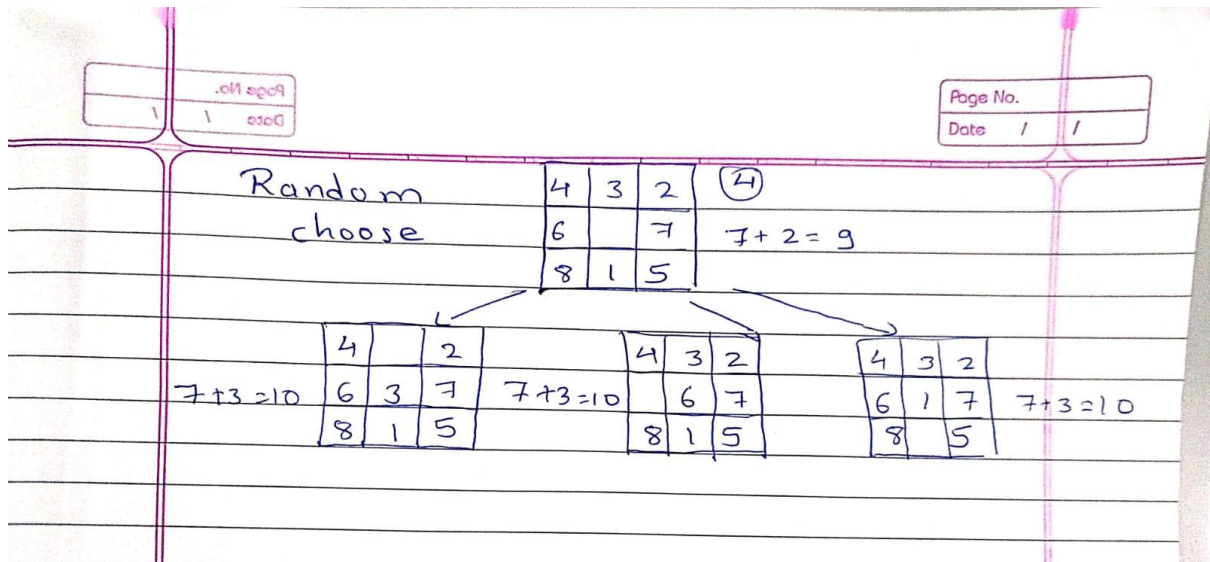 Page No.
Date / /
Page No.
Date / /
Random
choose
4 3 2
6 7
8 1 5
④
7 + 2 = 9
4 2
6 3 7
8 1 5
7 + 3 = 10
4 3 2
6 7
8 1 5
7 + 3 = 10
4 3 2
6 1 7
8 5
7 + 3 = 10